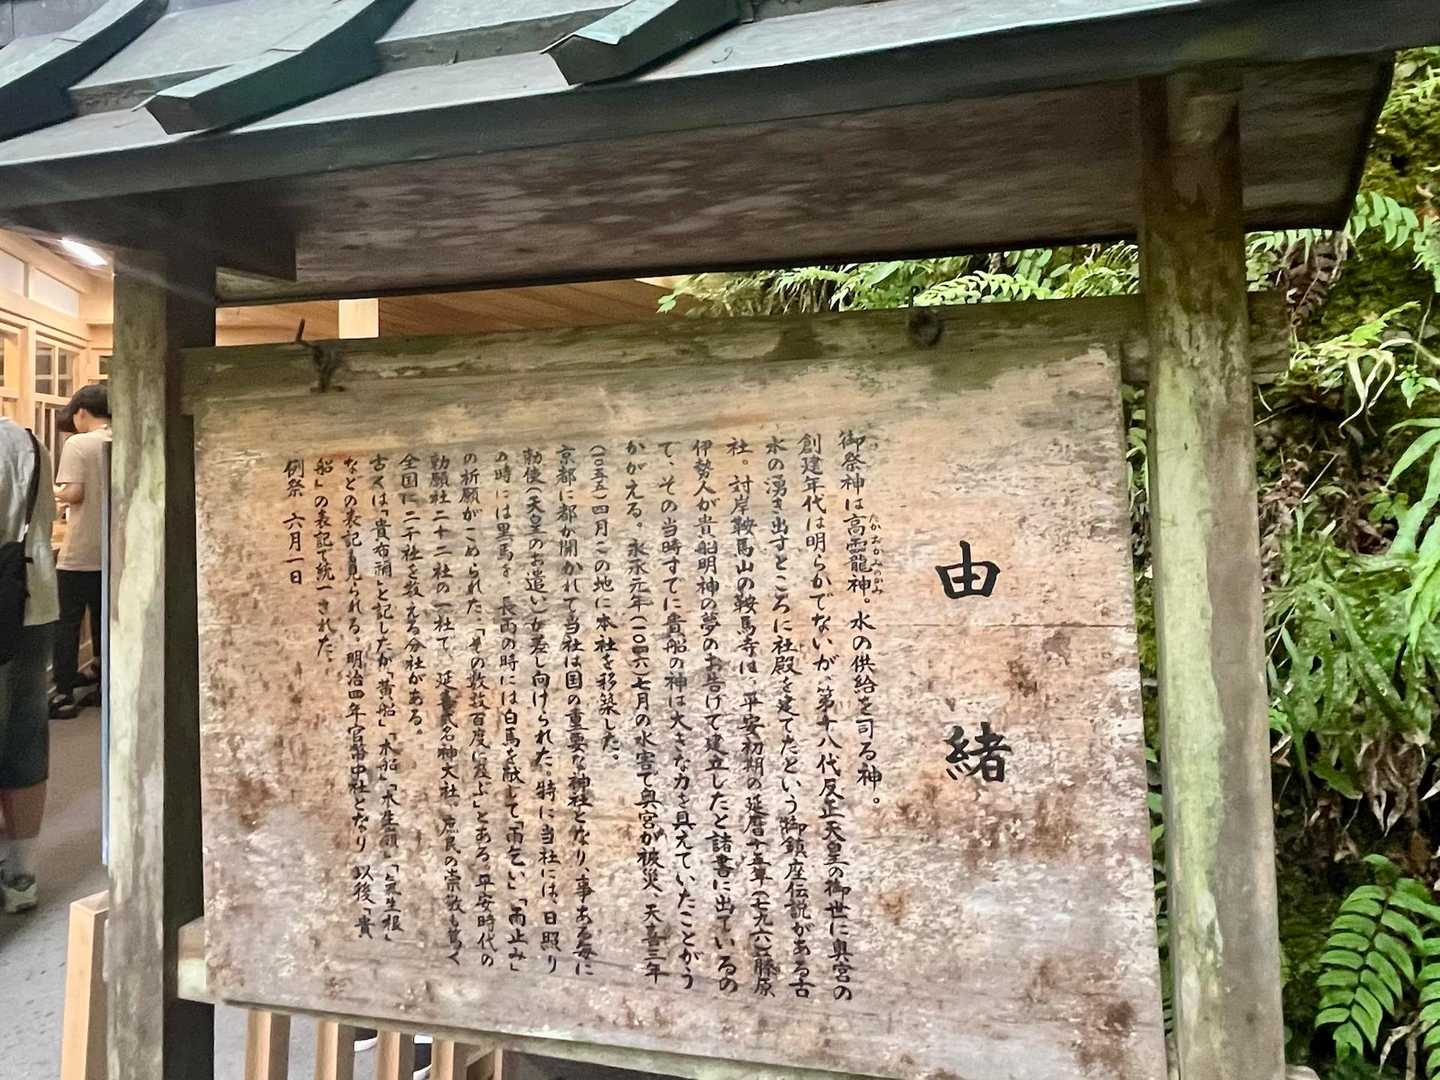 由緒
御祭神は高龗龍神。水の供給を司る神。
たかおかみのかみ
創建年代は明らかでないが、第十八代反正天皇の御世に奥宮の
水の湧き出すところに社殿を建てたという御鎮座伝説がある古
社。対岸鞍馬山の鞍馬寺は、平安初期の延暦十五年(七九六)藤原
伊勢人が貴船明神の夢のお告げで建立したと諸書に出ているの
で、その当時すでに貴船の神は大きな力を具えていたことがう
かがえる。永承元年(一〇四六)七月の水害で奥宮が被災、天喜三年
(一〇五五)四月この地に本社を移築した。
京都に都が開かれて当社は国の重要な神社となり、事ある毎に
勅使(天皇のお遣い)が差し向けられた。特に当社には、日照り
の時には黒馬を、長雨の時には白馬を献して「雨乞い」「雨止み」
の祈願がこめられた。「その数数百度に及ぶ」とある。平安時代の
勅願社二十二社の一社で、延喜式名神大社、庶民の崇敬も篤く
全国に二千社を数える分社がある。
古くは「貴布禰」と記したが「黄船」「木船」「木生嶺」「気生根」
などの表記も見られる。明治四年官幣中社となり、以後「貴
船」の表記で統一された。
例祭 六月一日